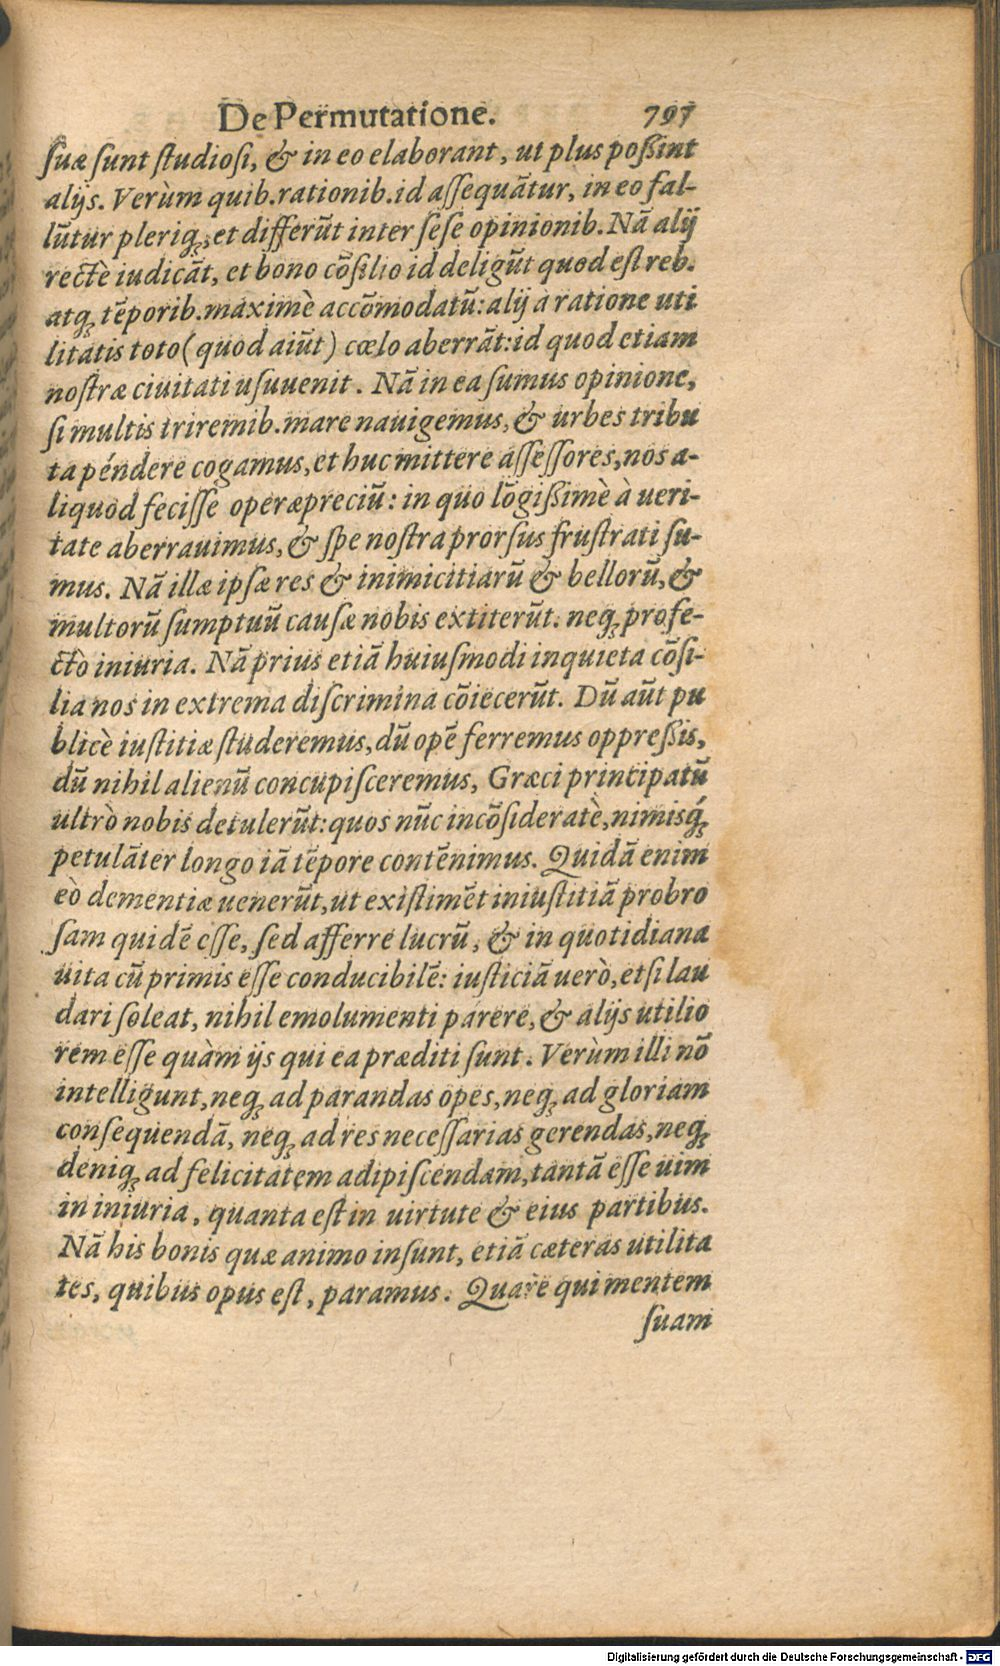 De Permutatione. 797
suæ sunt studiosi, & in eo elaborant, ut plus poßint
alijs. Verùm quib. rationib. id assequãtur, in eo fal-
lũtur pleriq;, et differũt inter sese opinionib. Nã alij
rectè iudicãt, et bono cõsilio id deligũt quod est reb.
atq; tẽporib. maximè accõmodatũ: alij à ratione uti
litatis toto (quod aiũt) cœlo aberrãt: id quod etiam
nostræ ciuitati usuuenit. Nã in ea sumus opinione,
si multis triremib. mare nauigemus, & urbes tribu
ta péndere cogamus, et huc mittere assessores, nos a-
liquod fecisse operæpreciũ: in quo lõgißimè à ueri-
tate aberrauimus, & spe nostra prorsus frustrati su-
mus. Nã illæ ipsæ res & inimicitiarũ & bellorũ, &
multorũ sumptuũ causæ nobis extiterũt. neq; profe-
ctò iniuria. Nã prius etiã huiusmodi inquieta cõsi-
lia nos in extrema discrimina cõiecerũt. Dũ aũt pu
blicè iustitiæ studeremus, dũ opẽ ferremus oppreßis,
dũ nihil alienũ concupisceremus, Græci principatũ
ultrò nobis detulerũt: quos nũc incõsideratè, nimisq́;
petulãter longo iã tẽpore contẽnimus. Quidã enim
eò dementiæ uenerũt, ut existimẽt iniustitiã probro
sam quidẽ esse, sed afferre lucrũ, & in quotidiana
uita cũ primis esse conducibilẽ: iusticiã uerò, etsi lau
dari soleat, nihil emolumenti parere, & alijs utilio
rem esse quàm ijs qui ea præditi sunt. Verùm illi nõ
intelligunt, neq; ad parandas opes, neq; ad gloriam
consequendã, neq; ad res necessarias gerendas, neq;
deniq; ad felicitatem adipiscendam, tantã esse uim
in iniuria, quanta est in uirtute & eius partibus.
Nã his bonis quæ animo insunt, etiã cæteras utilita
tes, quibus opus est, paramus. Quare qui mentem
suam
Digitalisierung gefördert durch die Deutsche Forschungsgemeinschaft - DFG